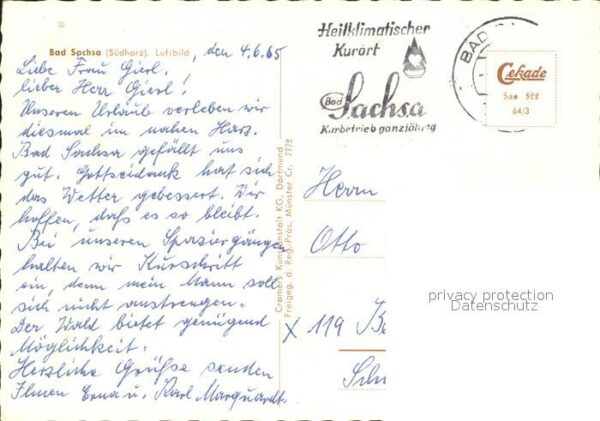 Bad Sachsa (Südharz). Luftbild, den 4.6.65
Liebe Frau Gierl,
lieber Herr Gierl!
Unseren Urlaub verleben wir
diesmal im nahen Harz.
Bad Sachsa gefällt uns
gut. Gottseidank hat sich
das Wetter gebessert. Wir
hoffen, daß es so bleibt.
Bei unseren Spaziergängen
halten wir Kurschritt
ein, denn mein Mann soll
sich nicht anstrengen.
Der Wald bietet genügend
Möglichkeit.
Herzliche Grüße senden
Ihnen Erna u. Karl Marquardt.
Cramers Kunstanstalt KG, Dortmund
Freigeg. d. Reg.-Präs. Münster Cr. 7772
Heilklimatischer
Kurort
Bad
Sachsa
Kurbetrieb ganzjährig
BAD
Cekade
Saa 522
64/3
Herrn
Otto
X 119 Be
privacy protection
Datenschutz